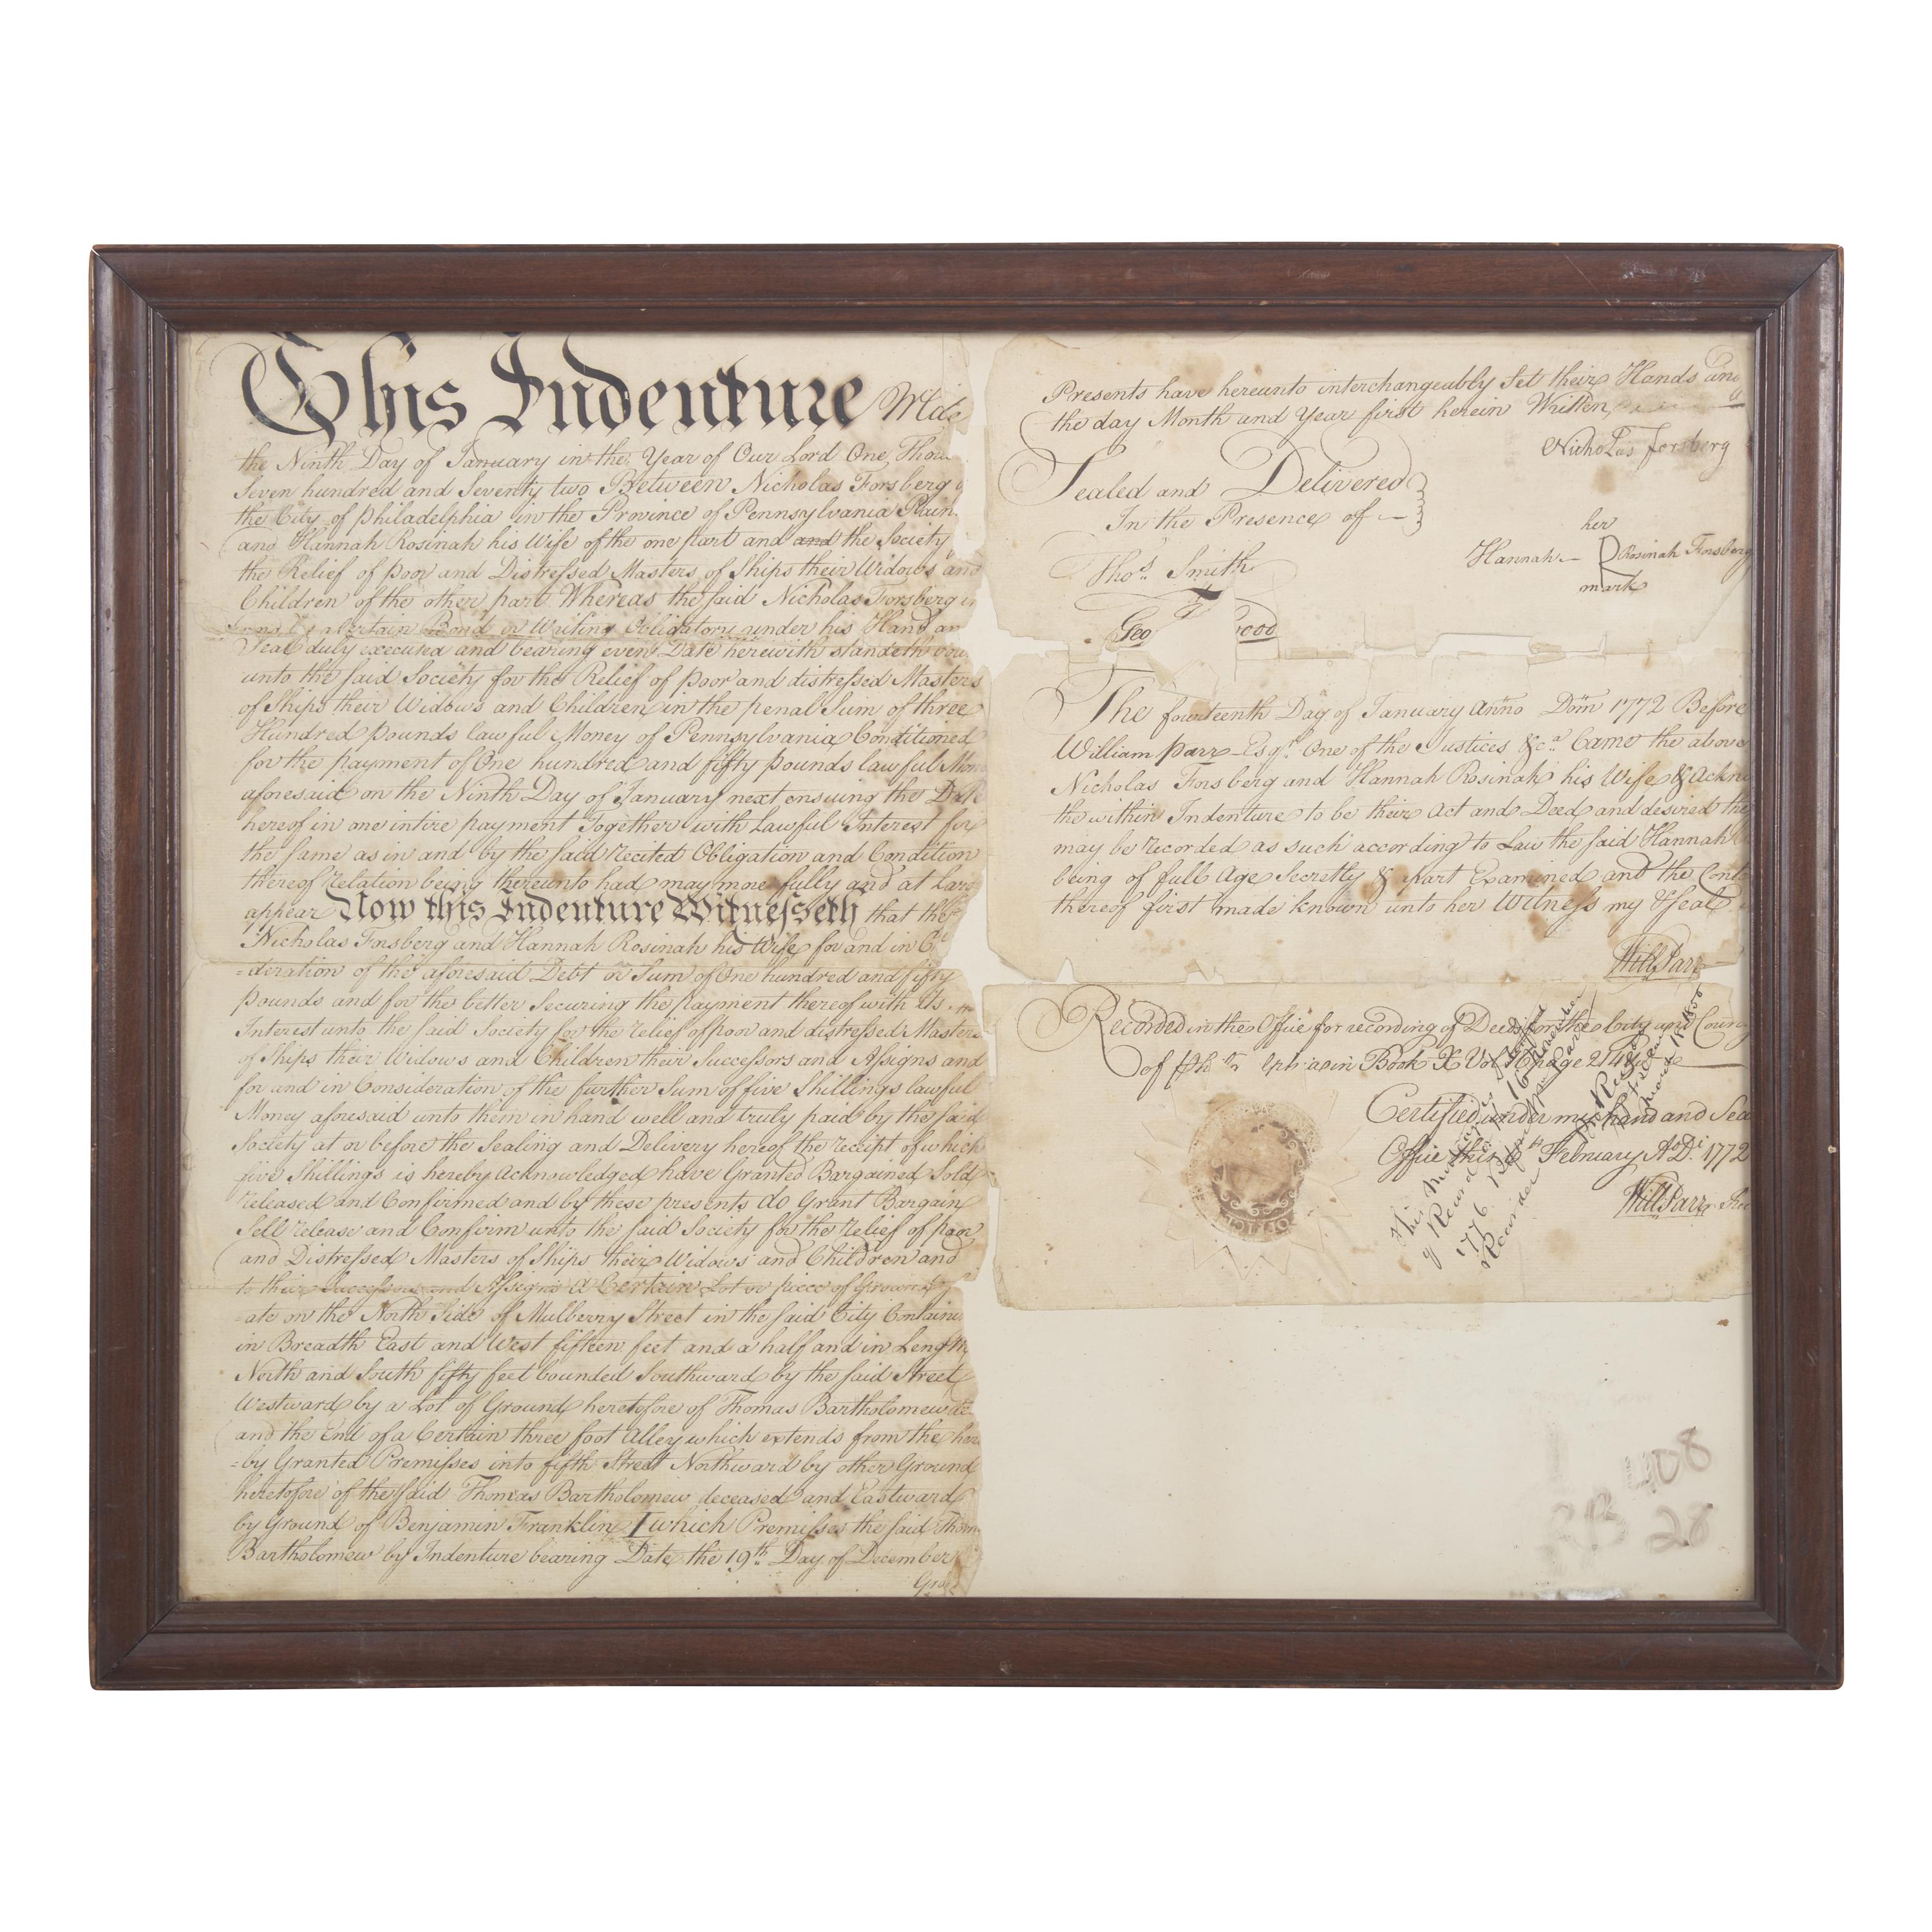 This Indenture Made
the Ninth Day of January in the Year of Our Lord One Thou
Seven hundred and Seventy two Between Nicholas Forsberg
the City of Philadelphia in the Province of Pennsylvania
and Hannah Rosinah his Wife of the one part and and the Society
the Relief of poor and Distressed Masters of Ships their Widows and
Children of the other part Whereas the said Nicholas Forsberg in
a certain Bond or Writing Obligatory under his Hand an
Seal duly executed and bearing even Date herewith standeth bou
unto the said Society for the Relief of poor and distressed Masters
of Ships their Widows and Children in the penal Sum of three
Hundred pounds lawful Money of Pennsylvania Conditioned
for the payment of One hundred and fifty pounds lawful Mon
aforesaid on the Ninth Day of January next ensuing the Date
hereof in one intire payment Together with Lawful Interest for
the same as in and by the said recited Obligation and Condition
thereof relation being thereunto had may more fully and at Larg
appear Now this Indenture Witnesseth that the
Nicholas Forsberg and Hannah Rosinah his Wife for and in
=deration of the aforesaid Debt or Sum of One hundred and fifty
pounds and for the better Securing the payment thereof with its
Interest unto the said Society for the relief of poor and distressed Masters
of Ships their Widows and Children their Successors and Assigns and
for and in Consideration of the further Sum of five Shillings lawful
Money aforesaid unto them in hand well and truly paid by the said
Society at or before the Sealing and Delivery hereof the receipt of which
five Shillings is hereby Acknowledged have Granted Bargained Sold
released and Confirmed and by these presents do Grant Bargain
Sell release and Confirm unto the said Society for the relief of poor
and Distressed Masters of Ships their Widows and Children and
to their Successors and Assigns A Certain Lot or piece of Ground
=ate on the North Side of Mulberry Street in the said City Containin
in Breadth East and West fifteen feet and a half and in Length
North and South fifty feet bounded Southward by the said Street
Westward by a Lot of Ground heretofore of Thomas Bartholomew
and the End of a Certain three foot Alley which extends from the here
=by Granted Premisses into fifth Street Northward by other Ground
heretofore of the said Thomas Bartholomew deceased and Eastward
by Ground of Benjamin Franklin which Premisses the said Thom
Bartholomew by Indenture bearing Date the 19th Day of December
Presents have hereunto interchangeably Set their Hands and
the day Month and Year first herein Written
Nicholas forsberg
Sealed and Delivered
In the Presence of
her
Hannah Rosinah Forsberg
mark
Thos Smith
Geo ood
The fourteenth Day of January Anno Dom 1772 Before
William Parr Esqr. One of the Justices &ca Came the above
Nicholas Forsberg and Hannah Rosinah his Wife & Ackno
the within Indenture to be their Act and Deed and desired the
may be recorded as such according to Law the said Hannah
being of full Age Secretly & apart Examined and the Conte
thereof first made known unto her Witness my & Seal
Will Parr
Recorded in the Office for recording of Deeds for the City and Coun
of in Book X Vol page 214
Certified under my hand and Sea
Office this 6th February A.D. 1772
Will Parr Rec
This Mortgage
of Record 16 November
1776
Recorder
OFFICE
108
28